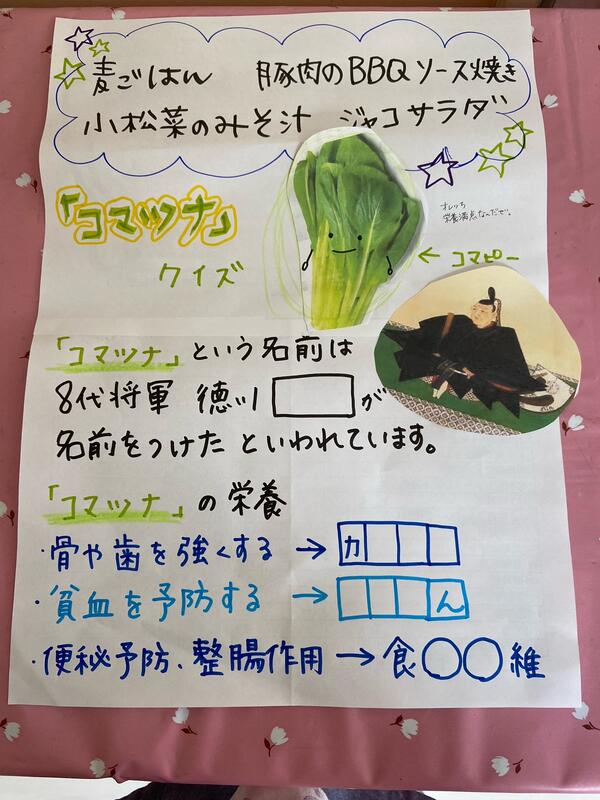 麦ごはん 豚肉のBBQソース焼き
小松菜のみそ汁 ジャコサラダ
「コマツナ」
クイズ
オレっち
栄養満点なんだぜ。
← コマピー
「コマツナ」という名前は
8代将軍 徳川□が
名前をつけたといわれています。
「コマツナ」の栄養
・骨や歯を強くする → カ□□□
・貧血を予防する → □□□ん
・便秘予防、整腸作用 → 食○○維